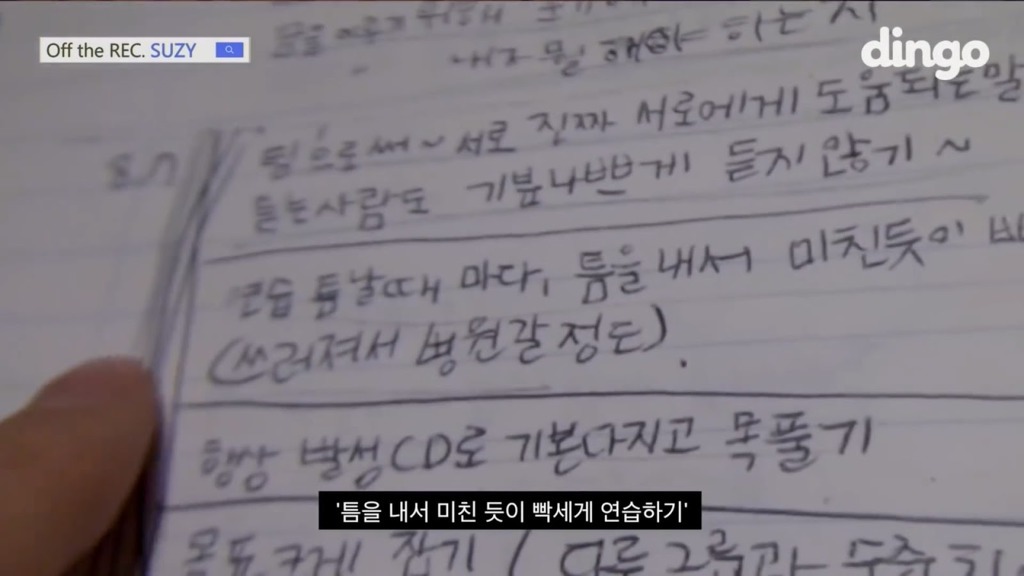 Off the REC. SUZY
dingo
해야 하는지
팀으로써~ 서로 진짜 서로에게 도움되는말
듣는사람도 기분나쁘게 듣지 않기~
연습 틈날때 마다, 틈을 내서 미친듯이 빡
(쓰러져서 병원갈 정도).
항상 발성CD로 기본다지고 목풀기
'틈을 내서 미친 듯이 빡세게 연습하기'
목표 크게 잡기